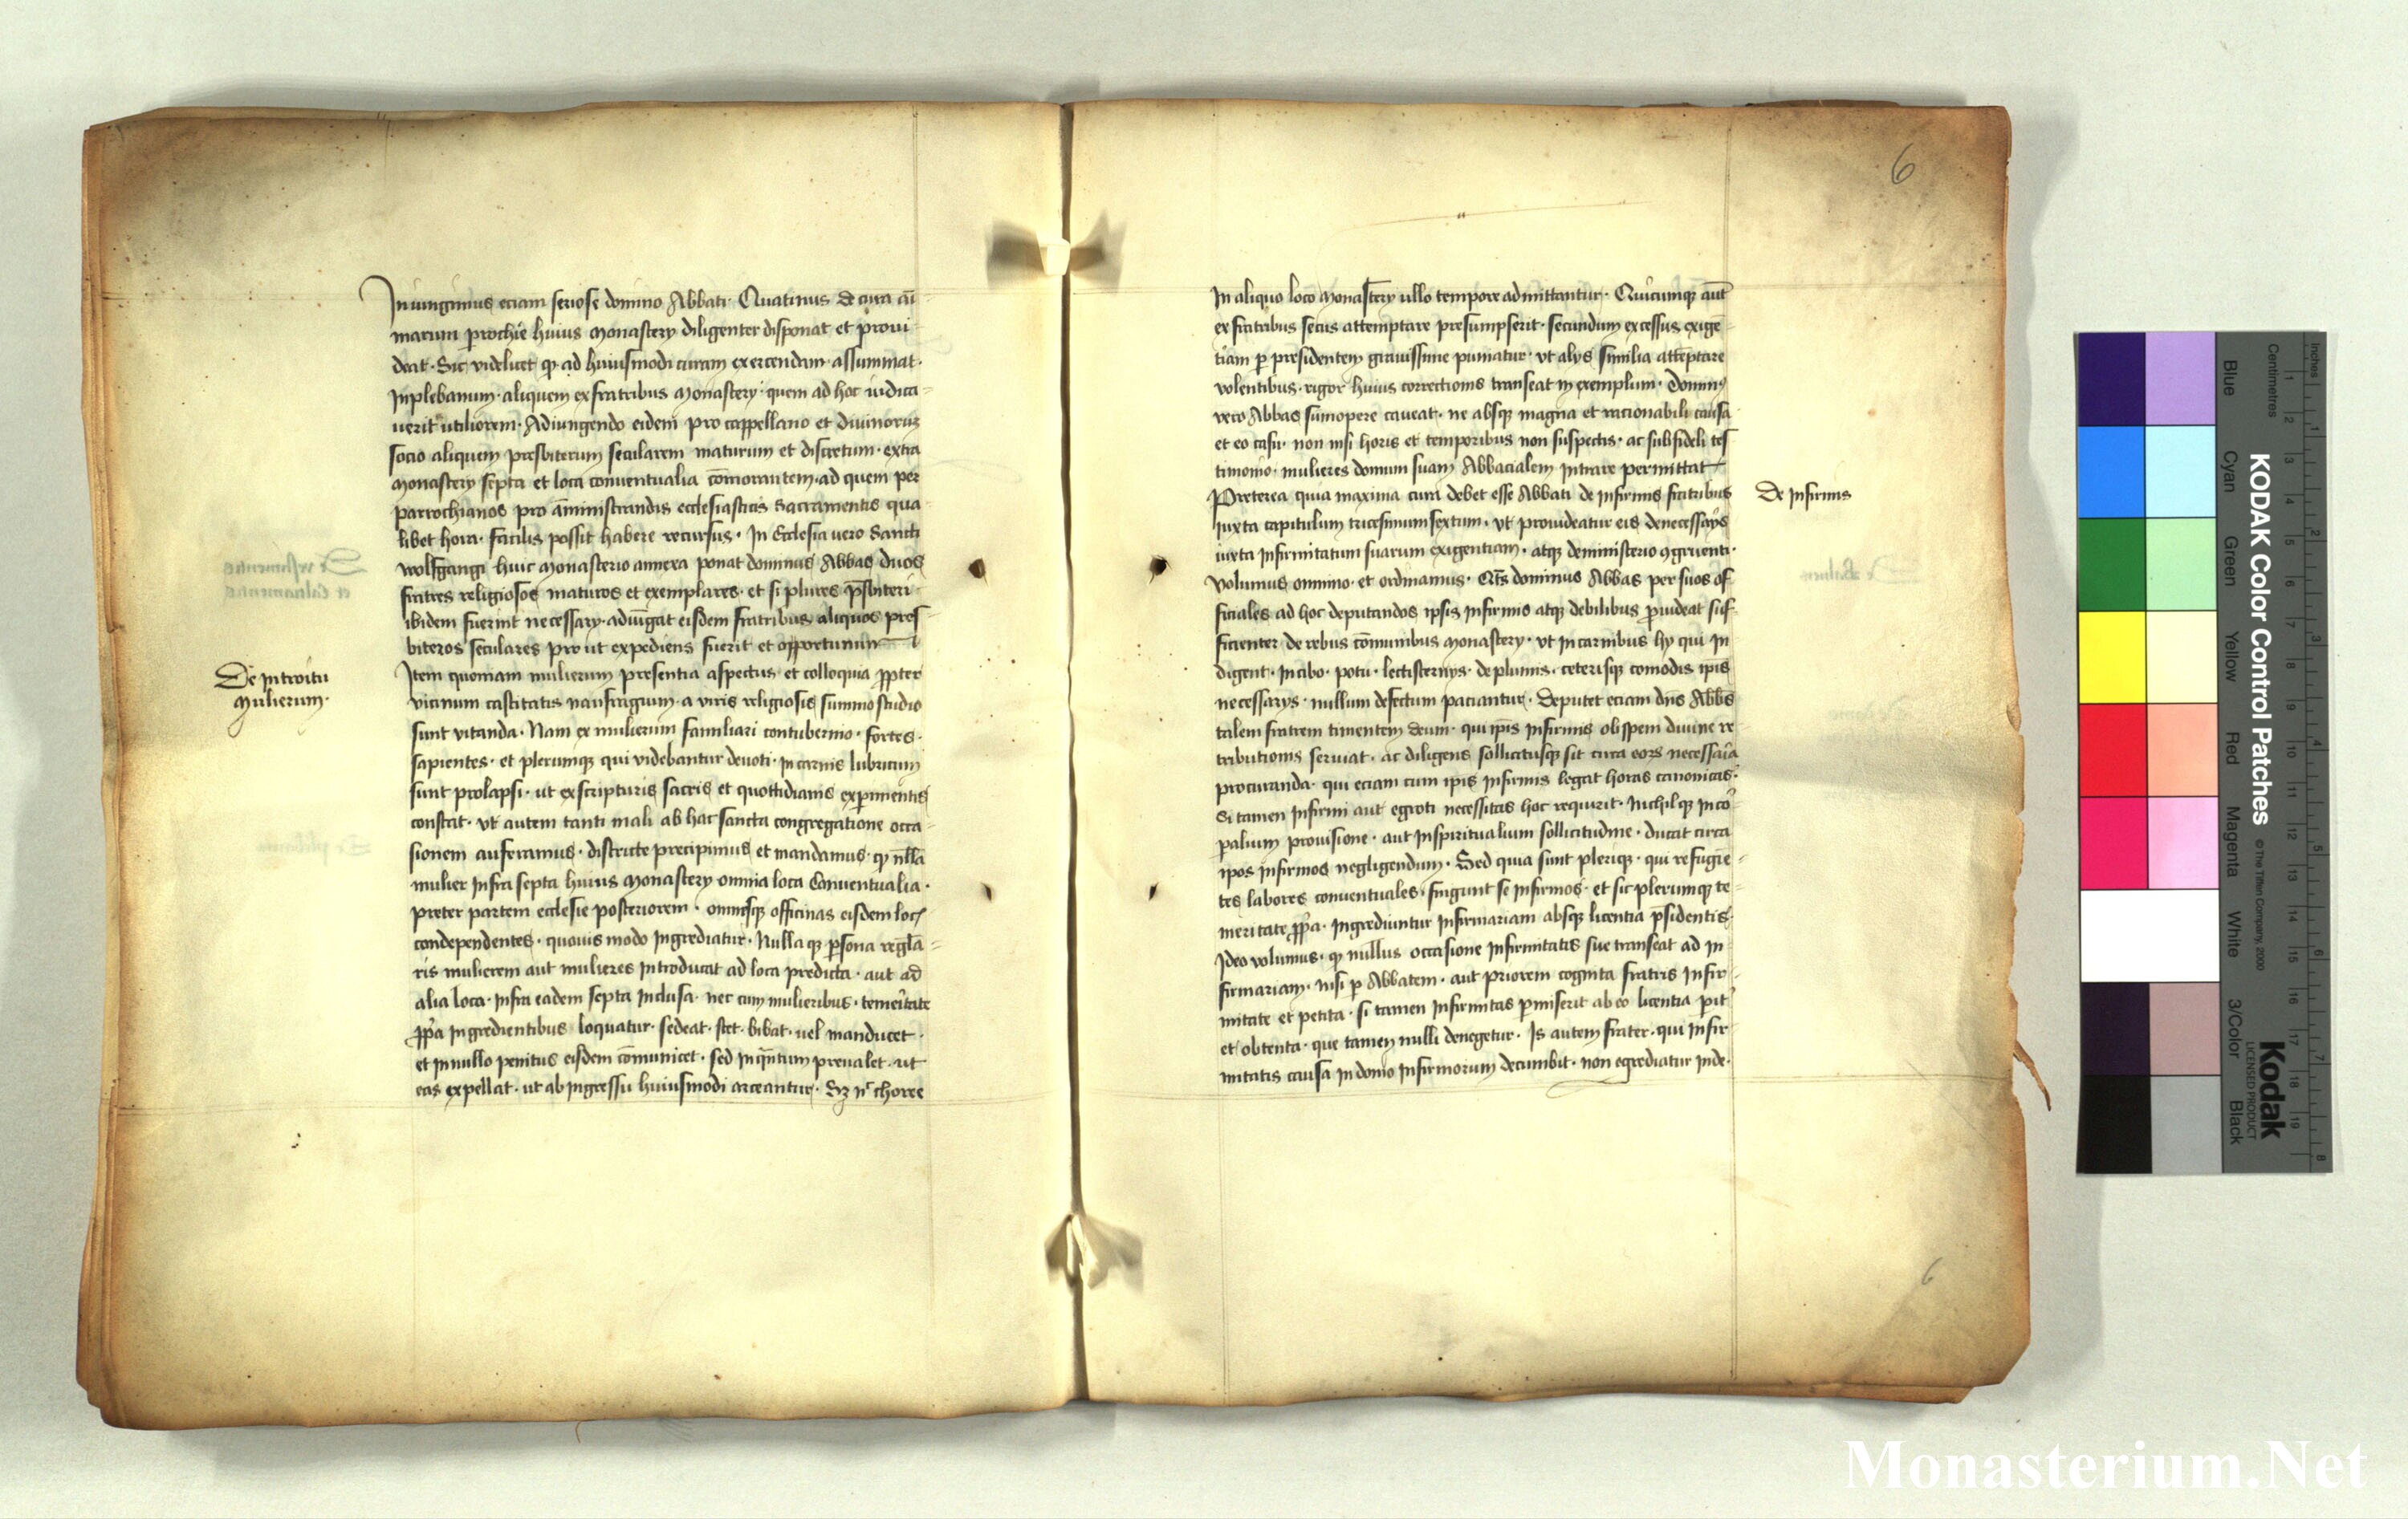 Iniungimus eciam seriose domino Abbati. Quatinus de cura ai͞
marum ꝑrochie huius Monastery diligenter disponat et proui
deat. Sic videlicet ꝙ ad huiusmodi curam exercendam assummat.
Inplebanum. aliquem ex fratribus Monastery. quem ad hoc iudica
uerit utiliorem. Adiungendo eidem pro cappellano et diuinorum
socio aliquem presbiterum secularem maturum et discretum. extra
Monastery septa et loca conuentualia co͞morantem. ad quem per
parrochianos pro a͞ministrandis ecclesiasticis Sacramentis qua
libet hora. facilis possit habere recursus. In Ecclesia uero Sancti
wolfgangi huic Monasterio annexa ponat dominus Abbas duos
fratres religiosos maturos et exemplares. et si plures p͞sbiteri
ibidem fuerint necessary. adiu͞gat eisdem fratribus aliquos pres
biteros seculares prout expediens fuerit et opportunum
De Introitu
Mulierum.
Item quoniam mulierum presentia aspectus et colloquia ꝓpter
vicinum castitatis naufragium. a viris religiosis summo studio
sunt vitanda. Nam ex mulierum familiari contubernio. fortes.
sapientes. et plerumqꝫ qui videbantur deuoti. in carnis lubricum
sunt prolapsi. ut ex scripturis sacris et quottidianis exꝑimentis
constat. Vt autem tanti mali ab hac sancta congregatione occa
sionem auferamus. districte precipimus et mandamus. ꝙ nu͞lla
mulier Infra septa huius Monastery omnia loca Conuentualia.
preter partem ecclesie posteriorem. omnesqꝫ officinas eisdem locꝭ
condependentes. quouis modo Ingrediatur. Nulla qꝫ ꝑsona regl͞a
ris mulierem aut mulieres Introducat ad loca predicta. aut ad
alia loca. Infra eadem septa Inclusa. nec cum mulieribus. temeritate
ꝓp͛a Ingredientibus loquatur. sedeat. stet. bibat. uel manducet.
et in nullo penitus eisdem co͞municet. sed Inqua͞tum preualet. ut
eas expellat. ut ab ingressu huiusmodi arceantur. Sꝫ nͨ choree
6
In aliquo loco Monastery ullo tempore admittantur. Quicumqꝫ aut͞
ex fratribus secus attemptare presumpserit. secundum excessus exige͞
tiam ꝑ presidentem grauissime puniatur. vt alys similia atte͞ptare
volentibus. rigor huius correctionis transeat in exemplum. Dominꝰ
vero Abbas sumopere caueat. ne absqꝫ magna et racionabili causa
et eo casu. non nisi horis et temporibus non suspectis. ac sub fideli tes
timonio. mulieres domum suam Abbacialem Intrare permittat
Preterea quia maxima cura debet esse Abbati de Infirmis fratribus
De Infirmis
Iuxta capitulum tricesimum sextum. vt prouideatur eis denecessarys
iuxta Infirmitatum suarum exigentiam. atqꝫ deministerio ꝯgruenti.
volumus omnino. et ordinamus. Qt͛s dominus Abbas per suos of
ficiales ad hoc deputandos ipsis Infirmis atqꝫ debilibus ꝓuideat suf
ficienter de rebus co͞munibus Monastery. vt in carnibus hy qui In
digent. In cibo. potu. lectisternys. de plumis. ceterisqꝫ comodis ip͞is
necessarys. nullum defectum paciantur. Deputet eciam dn͞s Abb͞s
talem fratrem timentem deum. qui ip͞is Infirmis ob spem diuine re
tributionis seruiat. ac diligens sollicitusqꝫ sit circa eorꝫ necessaria
procuranda. qui eciam cum ip͞is Infirmis legat horas canonicas.
Si tamen Infirmi aut egroti necessitas hoc requirit. Nichilqꝫ in co͛
ꝑalium prouisione. aut Inspiritualium sollicitudine. ducat circa
ip͞os infirmos negligendum. Sed quia sunt pleriqꝫ. qui refugie͞
tes labores conuentuales. fingunt se Infirmos. et sic plerumqꝫ te
meritate ꝓp͛a. Ingrediuntur Infirmariam absqꝫ licentia p͞sidentis.
Ideo volumus. ꝙ nullus occasione Infirmitatis sue transeat ad In
firmariam. nisi ꝑ Abbatem. aut priorem cognita fratris Infir
mitate et petita. si tamen Infirmitas ꝑmiserit ab eo licentia ꝑit͛
et obtenta. que tamen nulli denegetur. Is autem frater. qui Infir
mitatis causa In domo Infirmorum decumbit. non egrediatur inde.
6
KODAK Color Control Patches
© The Tiffen Company, 2000
Kodak
LICENSED PRODUCT
Blue
Cyan
Green
Yellow
Red
Magenta
White
3/Color
Black
Centimetres
Inches
Monasterium.Net